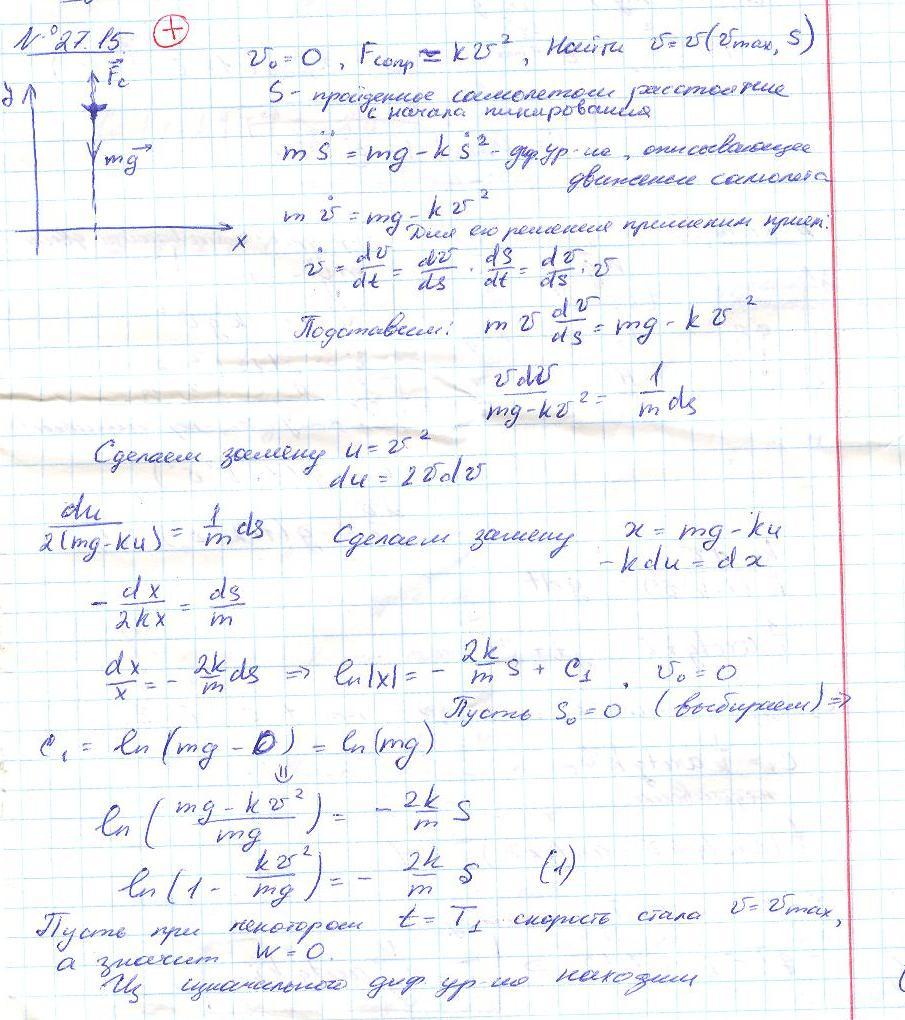 № 27.15 +
v₀ = 0, Fсопр = kv², Найти v = v(vmax, S)
S - пройденное самолетом расстояние
с начала пикирования
y F⃗c mg⃗ x
m s̈ = mg - k ṡ² - диф. ур-ие, описывающее
движение самолета
m v̇ = mg - kv²
Для его решения применим прием:
v̇ = dv/dt = dv/ds · ds/dt = dv/ds · v
Подставим: m v dv/ds = mg - kv²
vdv/(mg - kv²) = 1/m ds
Сделаем замену u = v²
du = 2vdv
du/2(mg - ku) = 1/m ds Сделаем замену x = mg - ku
-kdu = dx
- dx/2kx = ds/m
dx/x = - 2k/m ds => ln|x| = - 2k/m S + C₁, v₀ = 0
Пусть S₀ = 0 (выбираем) =>
C₁ = ln(mg - 0) = ln(mg)
⇓
ln((mg - kv²)/mg) = - 2k/m S
ln(1 - kv²/mg) = - 2k/m S (1)
Пусть при некотором t = T₁ скорость стала v = vmax,
а значит w = 0.
Из изначального диф ур-ия находим